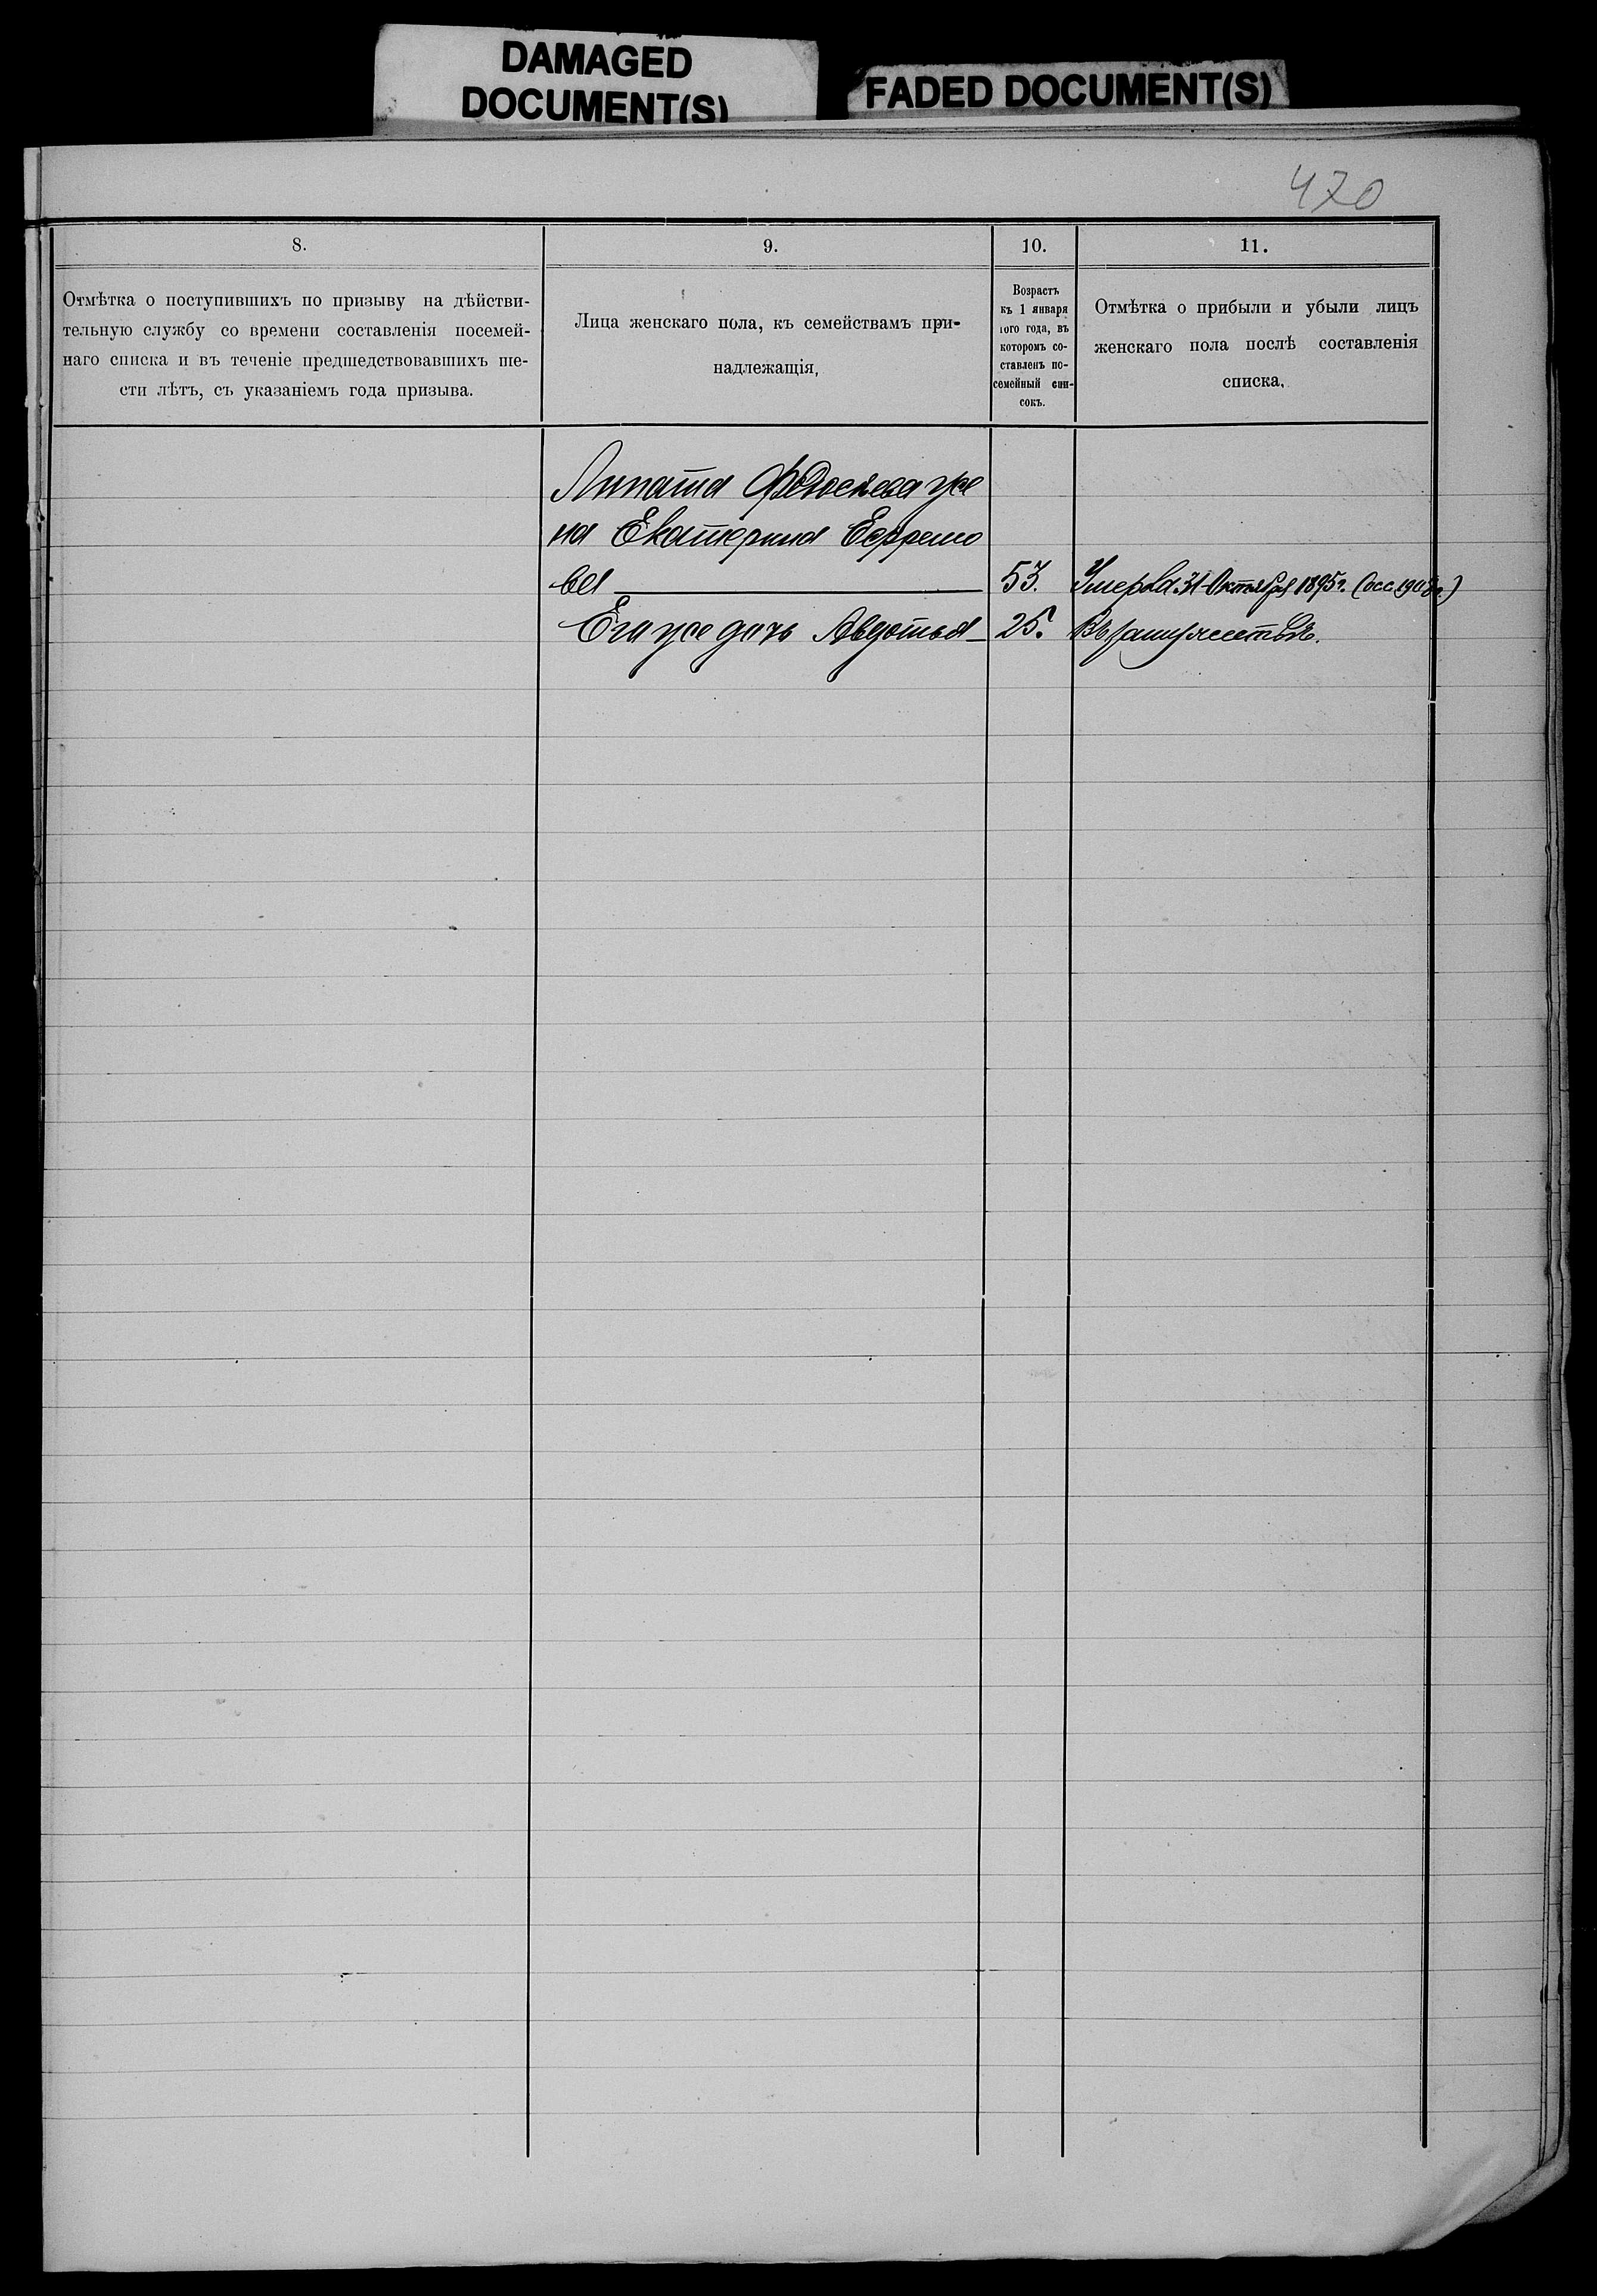 DAMAGED
DOCUMENT(S)
FADED DOCUMENT(S)
470
8.
Отмѣтка о поступившихъ по призыву на дѣйстви-
тельную службу со времени составленія посемей-
наго списка и въ теченіе предшедствовавшихъ ше-
сти лѣтъ, съ указаніемъ года призыва.
9.
Лица женскаго пола, къ семействамъ при-
надлежащія,
10.
Возрастъ
къ 1 января
того года, въ
которомъ со-
ставленъ по-
семейный спи-
сокъ.
11.
Отмѣтка о прибыли и убыли лицъ
женскаго пола послѣ составленія
списка.
Липата Федосѣева же
на Екатерина Ефремо
ва 53. Умерла 31 Октября 1895 г.
Его же дочь Авдотья 25. Въ замужествѣ.